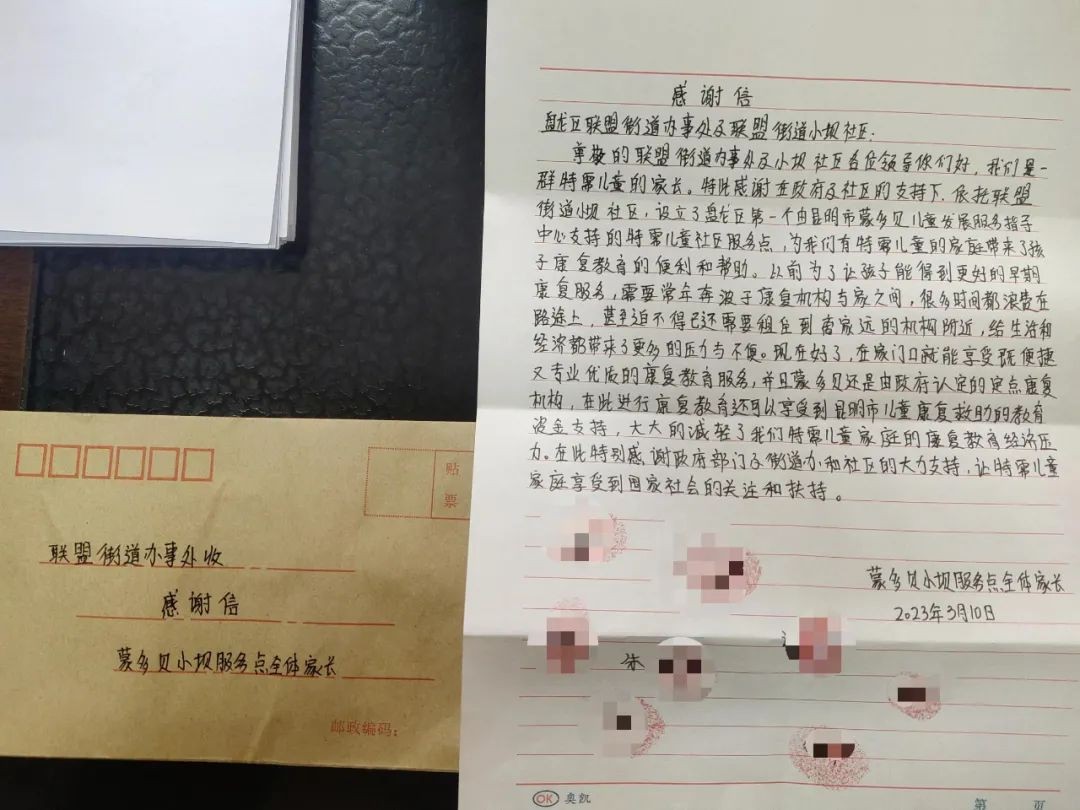 感谢信
盘龙区联盟街道办事处及联盟街道小坝社区：
尊敬的联盟街道办事处及小坝社区各位领导你们好，我们是一
群特需儿童的家长。特此感谢在政府及社区的支持下，依托联盟
街道小坝社区，设立了盘龙区第一个由昆明市蒙多贝儿童发展服务指导
中心支持的特需儿童社区服务点，为我们有特需儿童的家庭带来了孩
子康复教育的便利和帮助。以前为了让孩子能得到更好的早期
康复服务，需要常年奔波于康复机构与家之间，很多时间都浪费在
路途上，甚至迫不得已还需要租住到离家远的机构附近，给生活和
经济都带来了更多的压力与不便。现在好了，在家门口就能享受既便捷
又专业优质的康复教育服务，并且蒙多贝还是由政府认定的定点康复
机构，在此进行康复教育还可以享受到昆明市儿童康复救助的教育
资金支持，大大的减轻了我们特需儿童家庭的康复教育经济压
力。在此特别感谢政府部门及街道办和社区的大力支持，让特需儿童
家庭享受到国家社会的关注和扶持。
蒙多贝小坝服务点全体家长
2023年3月10日
朱
OK 奥凯
第 页
贴
票
联盟街道办事处收
感谢信
蒙多贝小坝服务点全体家长
邮政编码：